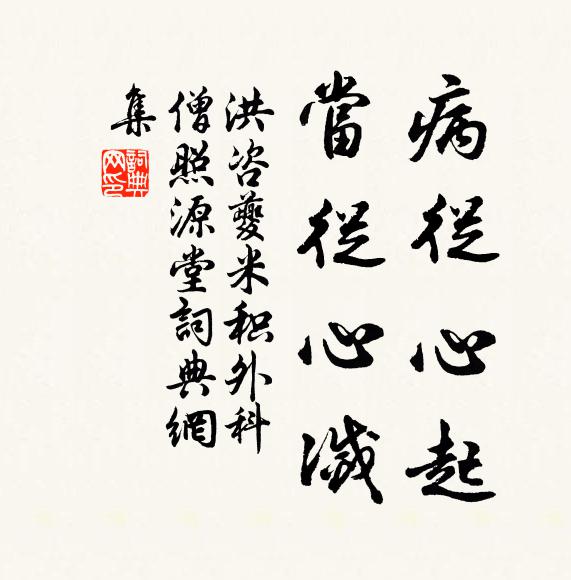 病從心起
當從心滅
洪咨夔米积外科
僧照源堂詞典網
集
詞典
网印